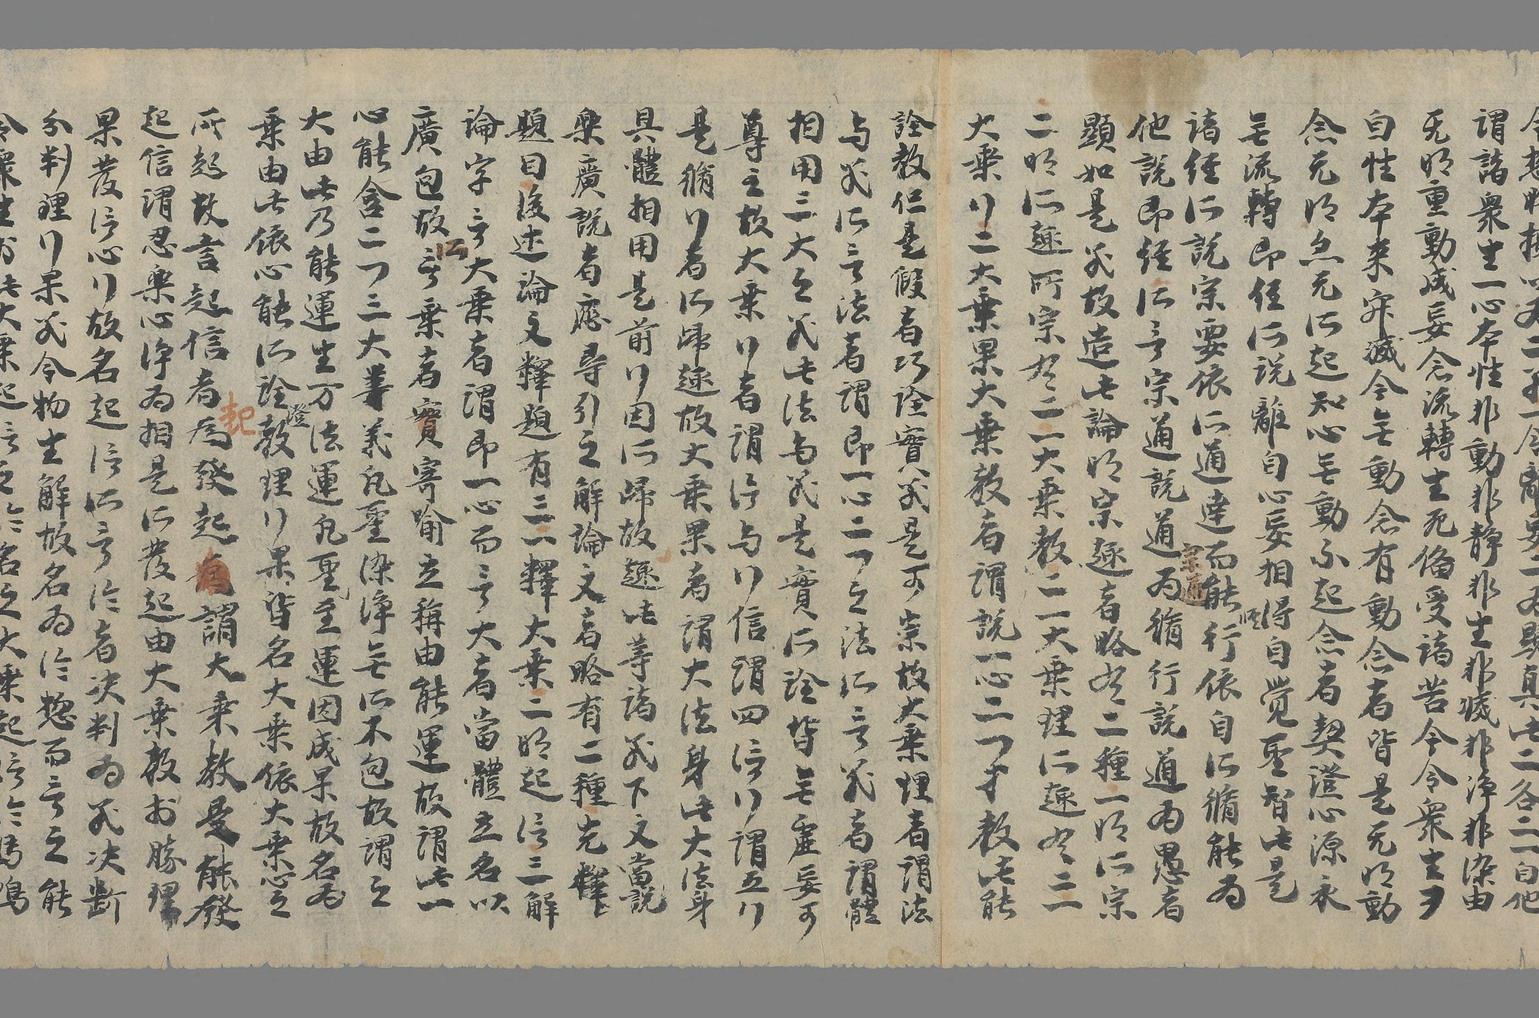 謂諸衆生一心本性非動非静非生非滅非淨非染由
无明重動成妄念流轉生死偹受諸苦今令衆生
自性本来寂滅今无動念有動念者皆是无明動
念无明念无所起知心无動不起念者契澄心源永
无流轉即経所説離自心妄相得自覺聖智此是
諸経所説宗要依所通達而能行依自所脩能為
他説即経所言宗通説通為脩行説通為愚者
顯如是義故造此論明宗趣者略有二種一明所宗
二明所趣所宗有二一大乗教二一大乗理所趣有二
大乗行二大乗果大乗教者謂説一心二門等教此能
詮教但是假者巧詮實義是可宗故大乗理者謂法
与義所言法者謂即一心二門之法所言義者謂體
相用三大之義此法与義是實所詮皆无虚妄可
尊主故大乗行者謂信与行信謂四信行謂五行
是脩行者所歸趣故大乗果者謂大法身此大法身
具體相用是前行因所歸故趣此等諸義下文當説
樂廣説者應尋引之解論文者略有二種先釋
題目後述論文釋題有三一釋大乗二明起信三解
論字言大乗者謂即一心而言大者當體立名以
廣包故所言乗者寶寄喻立稱由能運故謂此一
心能含二門三大等義凡聖染淨无所不包故謂之
大由此乃能運生万法運凡聖至運因成果故名為
乗由此依心能所詮教理行果皆名大乗依大乗心之
所起故言起信者為發起謂大乗教是能發
起信謂忍樂心淨為相是所發起由大乗教於勝理
果發信心行故名起信所言論者决判為義决断
分判理行果義令物生解故名為論揔而言之能
令衆生於此大乗起信之論名之大乗起信論馬鳴